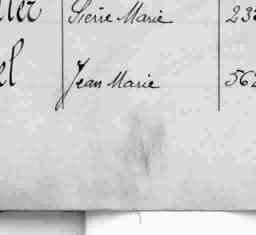 Pierre Marie 23
el Jean Marie 562